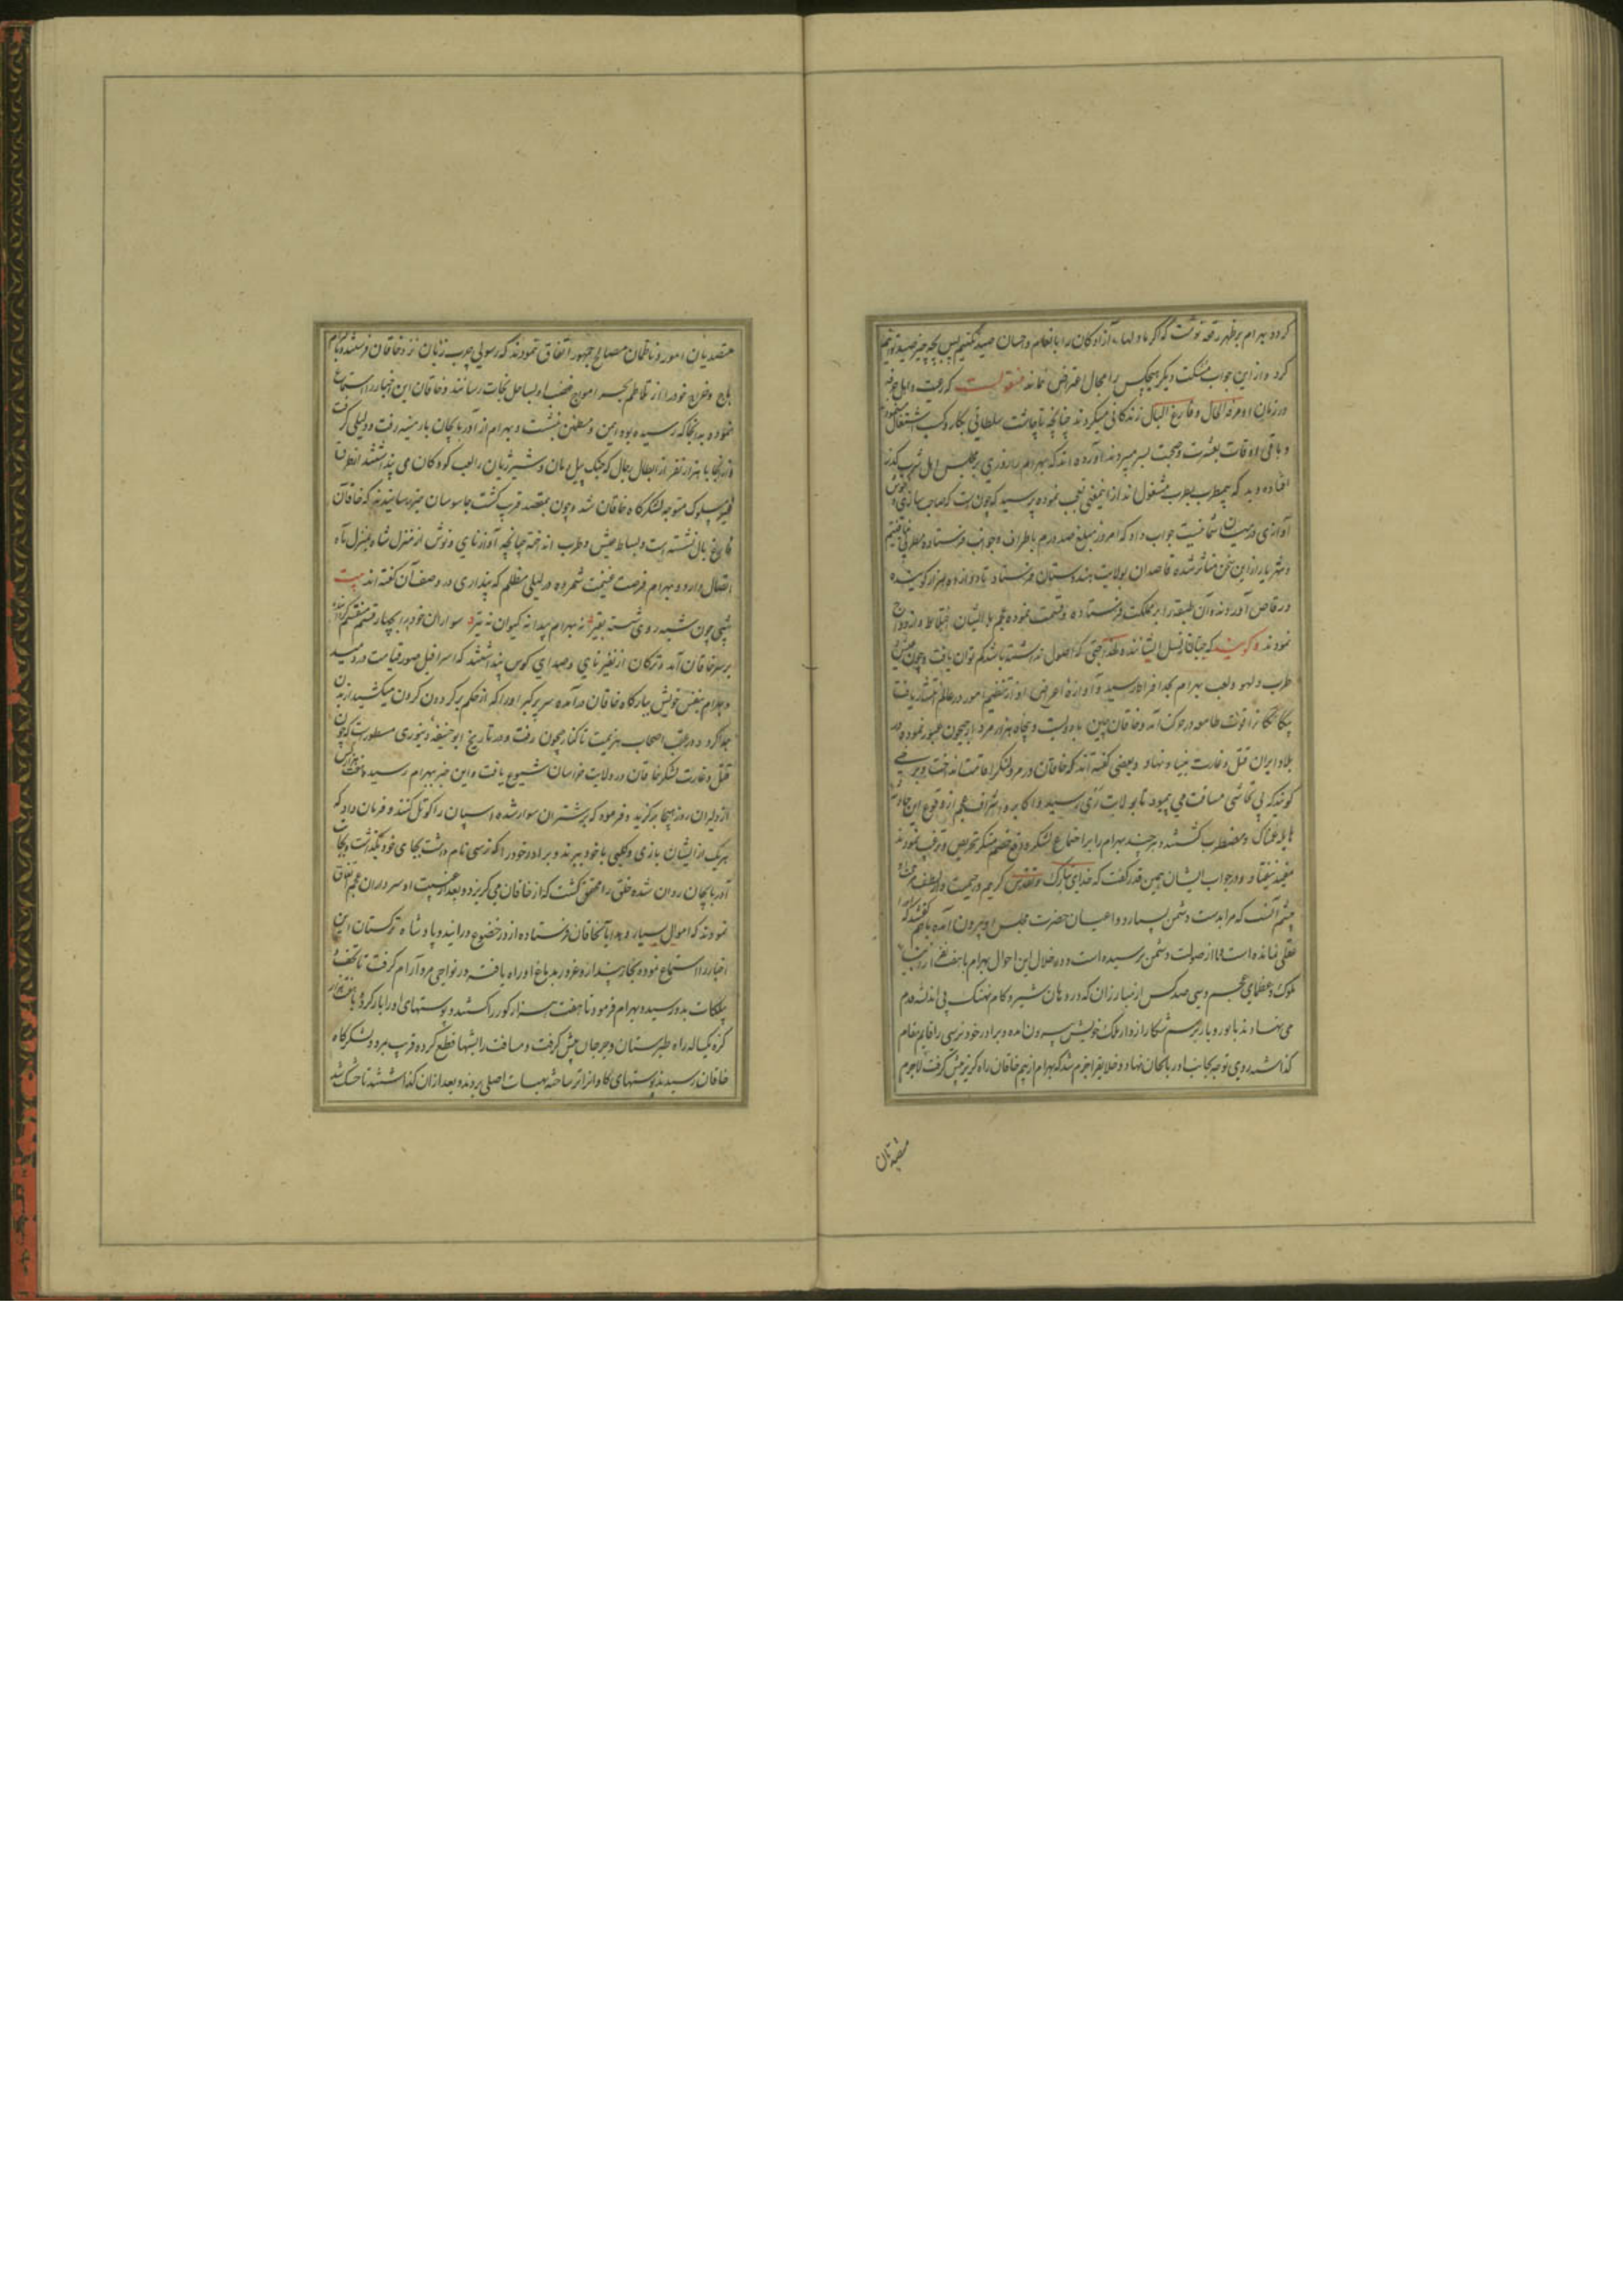 کرد و بهرام بر ظهر رقعه نوشت که اگر ما دلهاء آزادکان را بانعام و احسان صید نکنیم پس بچه چیز صید توانیم
کرد و از این جواب مسکت دیکر هیچکس را مجال اعتراض نماند منقولست که رعیت و اهل حرفه
در زمان او مرفه الحال و فارغ البال زندکانی میکردند چنانچه تا چاشت سلطانی بکار و کسب اشتغال مینمودند
و باقی اوقات بعشرت و صحبت بسر میبردند آورده اند که بهرام را روزی بر مجلس اهل شرب کذر
افتاده دید که بیمطرب بطرب مشغول اند از اینمعنی تعجب نموده پرسید که چون است که صاحب سازی و خوش
آوازی در میان شما نیست جواب داد که امروز مبلغ صد درم باطراف و جوانب فرستاده مطربی نیافتیم
و شهریار از این سخن متاثر شده قاصدان بولایت هندوستان فرستاد تا دوازده هزار کوینده
و رقاص آوردند و آن طبقه را بر مملکت فرستاده و قسمت نموده عجم با ایشان اختلاط و ازدواج
نمودند و کویند که جتان از نسل ایشانند و لهذا جتی که اصول نداشته باشد کم توان یافت و چون عیش و
طرب و لهو و لعب بهرام بحد افراط رسید و آوازه اعراض او از تنظیم امور در عالم انتشار یافت
بیکانکانرا قوت طامعه در حرکت آمد و خاقان چین با دویست و پنجاه هزار مرد از جیحون عبور نموده در
بلاد ایران قتل و غارت بنیاد نهاد و بعضی کفته اند که خاقان در مرو لنکر اقامت انداخت و برخی
کویند که بی تحاشی مسافت می پیمود تا بولایت ری رسید و اکابر و اشراف عجم از وقوع این حادثه
هایله غمناک و مضطرب کشتند و هر چند بهرام را بر اجتماع لشکر و دفع خصم متنکر تحریص و ترغیب نمودند
مفید نیفتاد و در جواب ایشان همین قدر کفت که خدای تبارک و تقدس کریم و رحیمست و از لطف او
چشم آنست که مرا بدست دشمن نسپارد و اعیان حضرت از مجلس او بیرون آمده با هم کفتند که او را
عقلی نمانده است و ما از صولت دشمن ترسیده است و در خلال این احوال بهرام با هفت نفر از ابناء
ملوک و عظمای عجم و سی صد کس از مبارزان که در دهان شیر و کام نهنک بی اندیشه قدم
می نهادند با یوز و باز برسم شکار از دار الملک خویش بیرون آمده و برادر خود نرسی را قایم مقام
کذاشته روی توجه بجانب آذربایجان نهاد و خلایق را جزم شد که بهرام از بیم خاقان راه کریز پیش کرفت لاجرم
متصدیان
متصدیان امور و ناظمان مصالح جمهور اتفاق نمودند که رسولی چرب زبان نزد خاقان فرستند و بالتزام
باج و خراج خود را از تلاطم بحر امواج غضب او بساحل نجات رسانند و خاقان این اخبار را استماع
نموده بدانجا که رسیده بود ایمن و مطمئن بنشست و بهرام از آذربایجان بارمنیه رفت و دلیلی کرفت
و از آنجا با هزار نفر از ابطال رجال که جنک پیل مان و شیر ژیان را لعب کودکان می پنداشتند بطریق
غیر مسلوک متوجه لشکرکاه خاقان شد و چون بمقصد قریب کشت جاسوسان خبر رسانیدند که خاقان
فارغ بال نشسته است و بساط عیش و طرب انداخته چنانچه آواز نای و نوش از منزل شاه بمنزل ماه
اتصال دارد و بهرام فرصت غنیمت شمرده در لیلی مظلم که پنداری در وصف آن کفته اند بیت
شبی چون شبه روی شسته بقیر نه بهرام پیدا نه کیوان نه تیر سواران خود را بچهار قسم منقسم کردانیده
بر سر خاقان آمد و ترکان از نفیر نای و صدای کوس پنداشتند که اسرافیل صور قیامت در دمید
و بهرام بنفس خویش ببارکاه خاقان درآمده سر پر کبر او را که از حکم پرکرده‌ن کردن میکشید از بدن
جدا کرد و در عقب اصحاب هزیمت تا کنار جیحون رفت و در تاریخ ابو حنیفه دینوری مسطورست که چون
قتل و غارت لشکر خاقان در ولایت خراسان شیوع یافت و این خبر ببهرام رسید هفت هزار کس
از دلیران روز هیجا برکزید و فرموده که بر شتران سوار شده و اسپان را کوتل کنند و فرمان داد که
هریک از ایشان بازی و کلبی با خود ببرند و برادر خود را که نرسی نام داشت بجای خود بکذاشت و بجانب
آذربایجان روان شده خلق را محقق کشت که از خاقان می کریزد و بعد از غیبت او سرداران عجم اتفاق
نمودند که اموال بسیار و هدایا بخاقان فرستاده از در خضوع درآیند و پادشاه ترکستان این
اخبار را استماع نموده بخار پندار و غرور بدماغ او راه یافته در نواحی مرو آرام کرفت تا تحف و
پیلکات بدو رسید و بهرام فرمود تا هفت هزار کور را کشتند و پوستهای او را بار کرد و با هفت هزار
کره یکساله راه طبرستان و جرجان پیش کرفت و مسافت را بشبها قطع کرده قریب بمرو و لشکرکاه
خاقان رسیدند پوستهای کاو انرا تر ساخته بهیات اصلی بردند و بعد از ان کذاشتند تا خشک شد